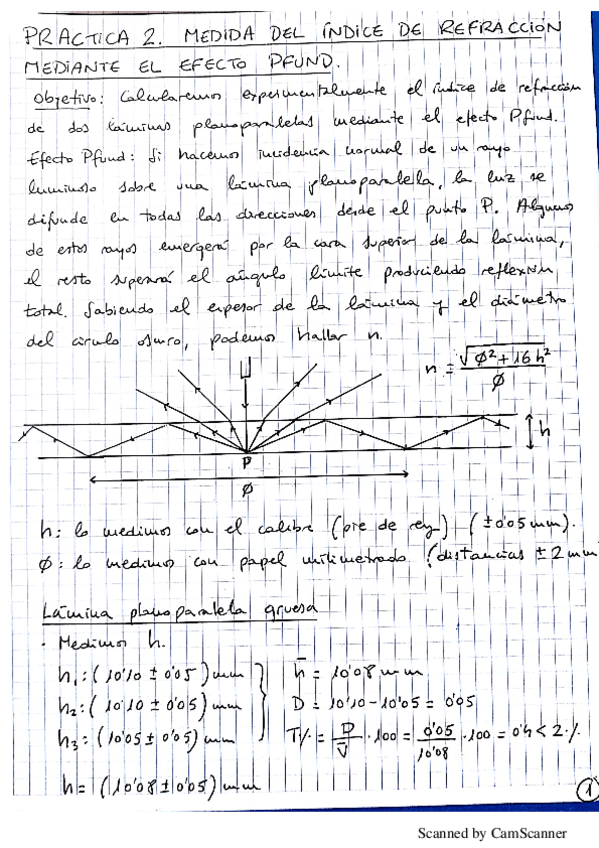 PRACTICA 2. MEDIDA DEL ÍNDICE DE REFRACCIÓN
MEDIANTE EL EFECTO PFUND.
Objetivo: Calcularemos experimentalmente el índice de refracción
de dos láminas planoparalelas mediante el efecto Pfund.
Efecto Pfund: Si hacemos incidencia normal de un rayo
luminoso sobre una lámina planoparalela, la luz se
difunde en todas las direcciones desde el punto P. Algunos
de estos rayos emergerá por la cara superior de la lámina,
el resto superará el ángulo límite produciendo reflexión
total. Sabiendo el espesor de la lámina y el diámetro
del círculo oscuro, podemos hallar n.
n = √(Ø² + 16h²) / Ø
h
P
Ø
h: lo medimos con el calibre (pie de rey) (±0'05 mm).
Ø: lo medimos con papel milimetrado (distancias ± 2 mm
Lámina planoparalela gruesa
· Medimos h.
h₁: (10'10 ± 0'05) mm
h₂: (10'10 ± 0'05) mm
h₃: (10'05 ± 0'05) mm
h̄ = 10'08 mm
D = 10'10 - 10'05 = 0'05
T% = D/V̄ · 100 = 0'05/10'08 · 100 = 0'4 < 2%
h = (10'08 ± 0'05) mm
1
Scanned by CamScanner